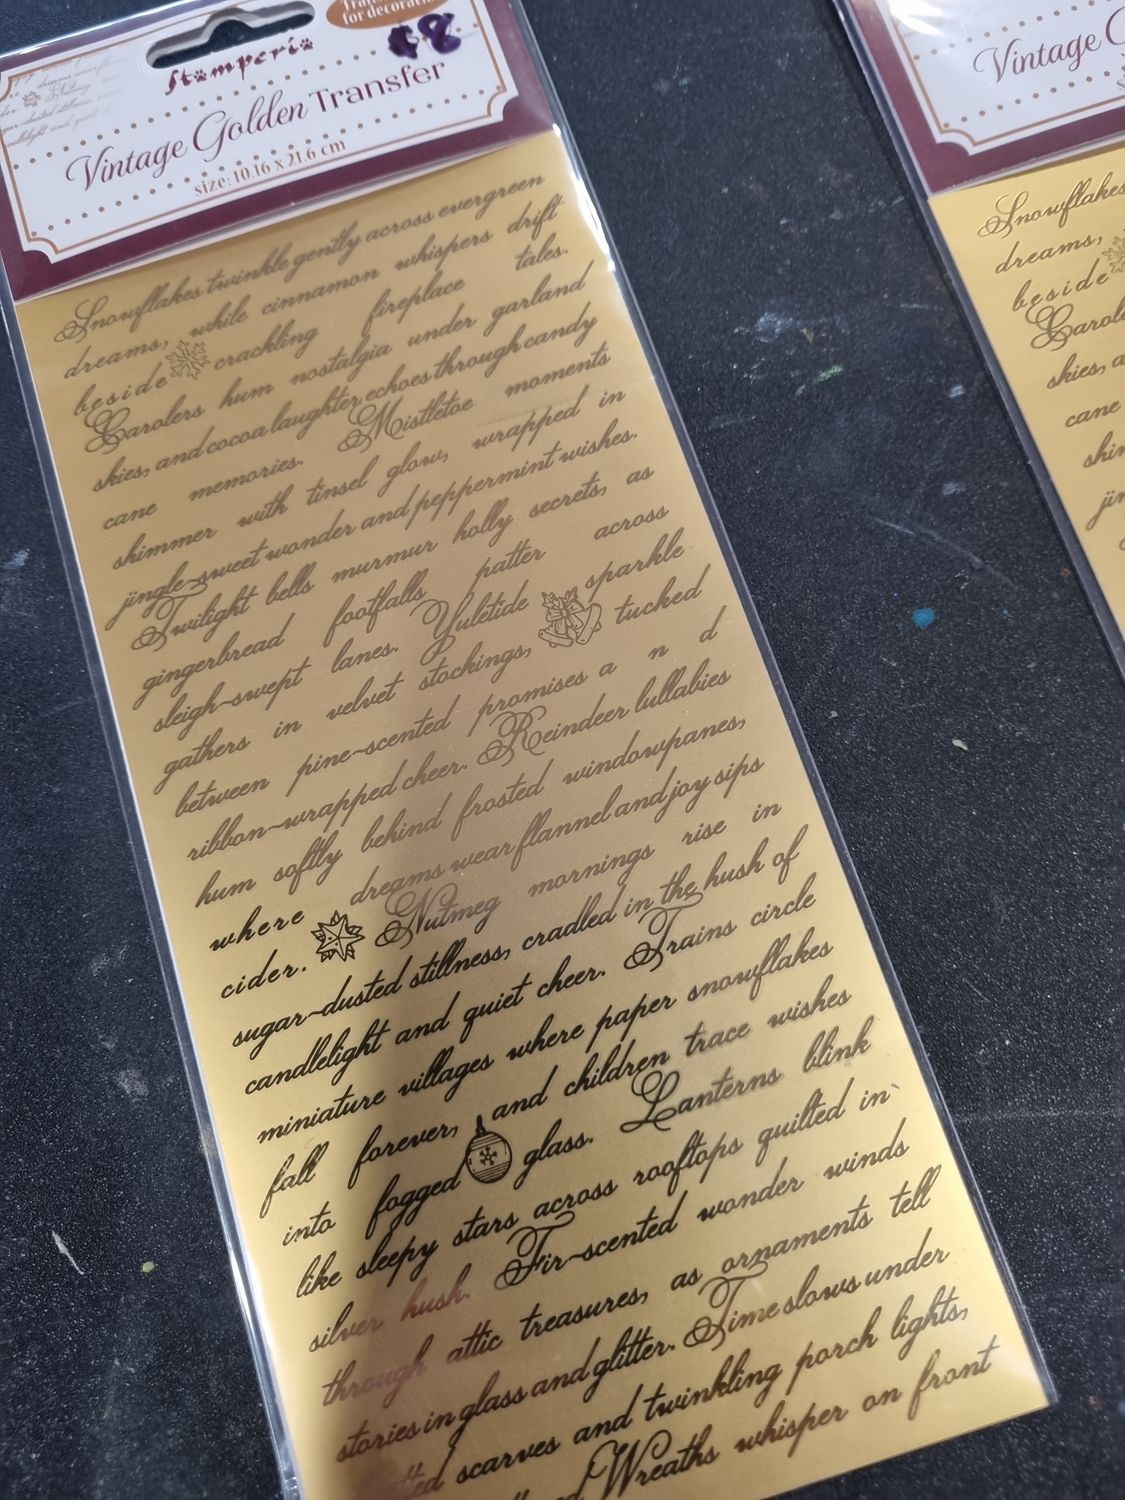 for decoration
48
Stamperia
Vintage Golden Transfer
size: 10.16 x 21.6 cm
Snowflakes twinkle gently across evergreen
dreams, while cinnamon whispers drift
beside crackling fireplace tales.
Carolers hum nostalgia under garland
skies, and cocoa laughter echoes through candy
cane memories. Mistletoe moments
shimmer with tinsel glow, wrapped in
jingle-sweet wonder and peppermint wishes.
Twilight bells murmur holly secrets, as
gingerbread footfalls patter across
sleigh-swept lanes. Yuletide sparkle
gathers in velvet stockings, tucked
between pine-scented promises a n d
ribbon-wrapped cheer. Reindeer lullabies
hum softly behind frosted windowpanes,
where dreams wear flannel and joy sips
cider. Nutmeg mornings rise in
sugar-dusted stillness, cradled in the hush of
candlelight and quiet cheer. Trains circle
miniature villages where paper snowflakes
fall forever, and children trace wishes
into fogged glass. Lanterns blink
like sleepy stars across rooftops quilted in
silver hush. Fir-scented wonder winds
through attic treasures, as ornaments tell
stories in glass and glitter. Time slows under
scarves and twinkling porch lights,
Wreaths whisper on front
Vintage
Snowflakes
dreams,
beside
skies,
cane